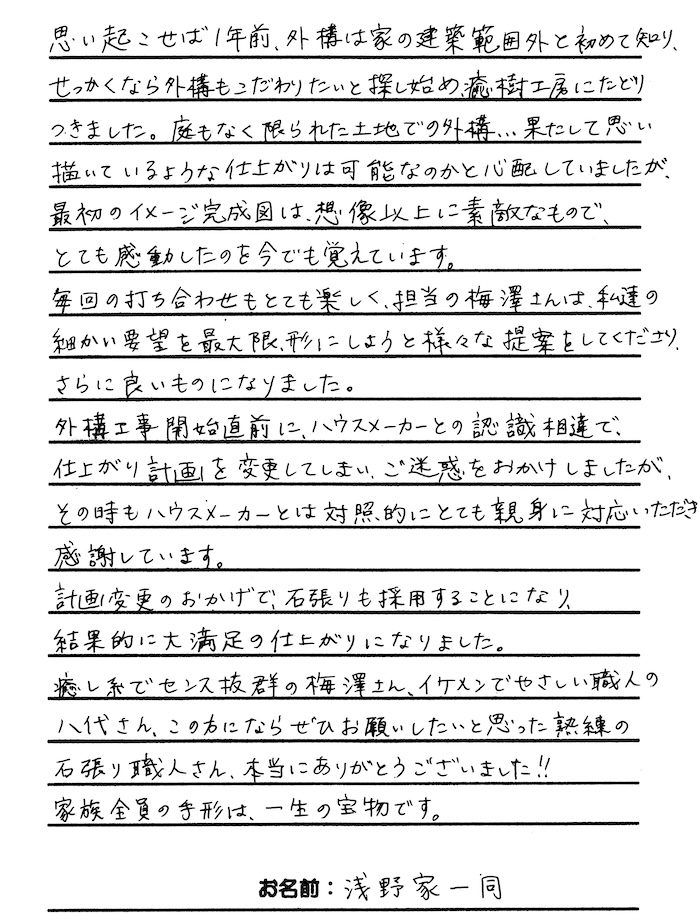 思い起こせば1年前、外構は家の建築範囲外と初めて知り、
せっかくなら外構もこだわりたいと探し始め、癒樹工房にたどり
つきました。庭もなく限られた土地での外構…果たして思い
描いているような仕上がりは可能なのかと心配していましたが、
最初のイメージ完成図は、想像以上に素敵なもので、
とても感動したのを今でも覚えています。
毎回の打ち合わせもとても楽しく、担当の梅澤さんは、私達の
細かい要望を最大限、形にしようと様々な提案をしてくださり、
さらに良いものになりました。
外構工事開始直前に、ハウスメーカーとの認識相違で、
仕上がり計画を変更してしまい、ご迷惑をおかけしましたが、
その時もハウスメーカーとは対照的にとても親身に対応いただき
感謝しています。
計画変更のおかげで、石張りも採用することになり、
結果的に大満足の仕上がりになりました。
癒し系でセンス抜群の梅澤さん、イケメンでやさしい職人の
八代さん、この方にならぜひお願いしたいと思った熟練の
石張り職人さん、本当にありがとうございました!!
家族全員の手形は、一生の宝物です。
お名前：浅野家一同